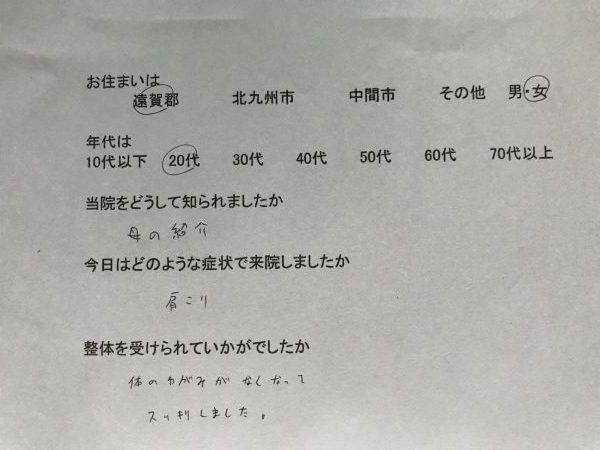 お住まいは
遠賀郡 北九州市 中間市 その他 男・女
年代は
10代以下 20代 30代 40代 50代 60代 70代以上
当院をどうして知られましたか
母の紹介
今日はどのような症状で来院しましたか
肩こり
整体を受けられていかがでしたか
体のゆがみがなくなって
スッキリしました。